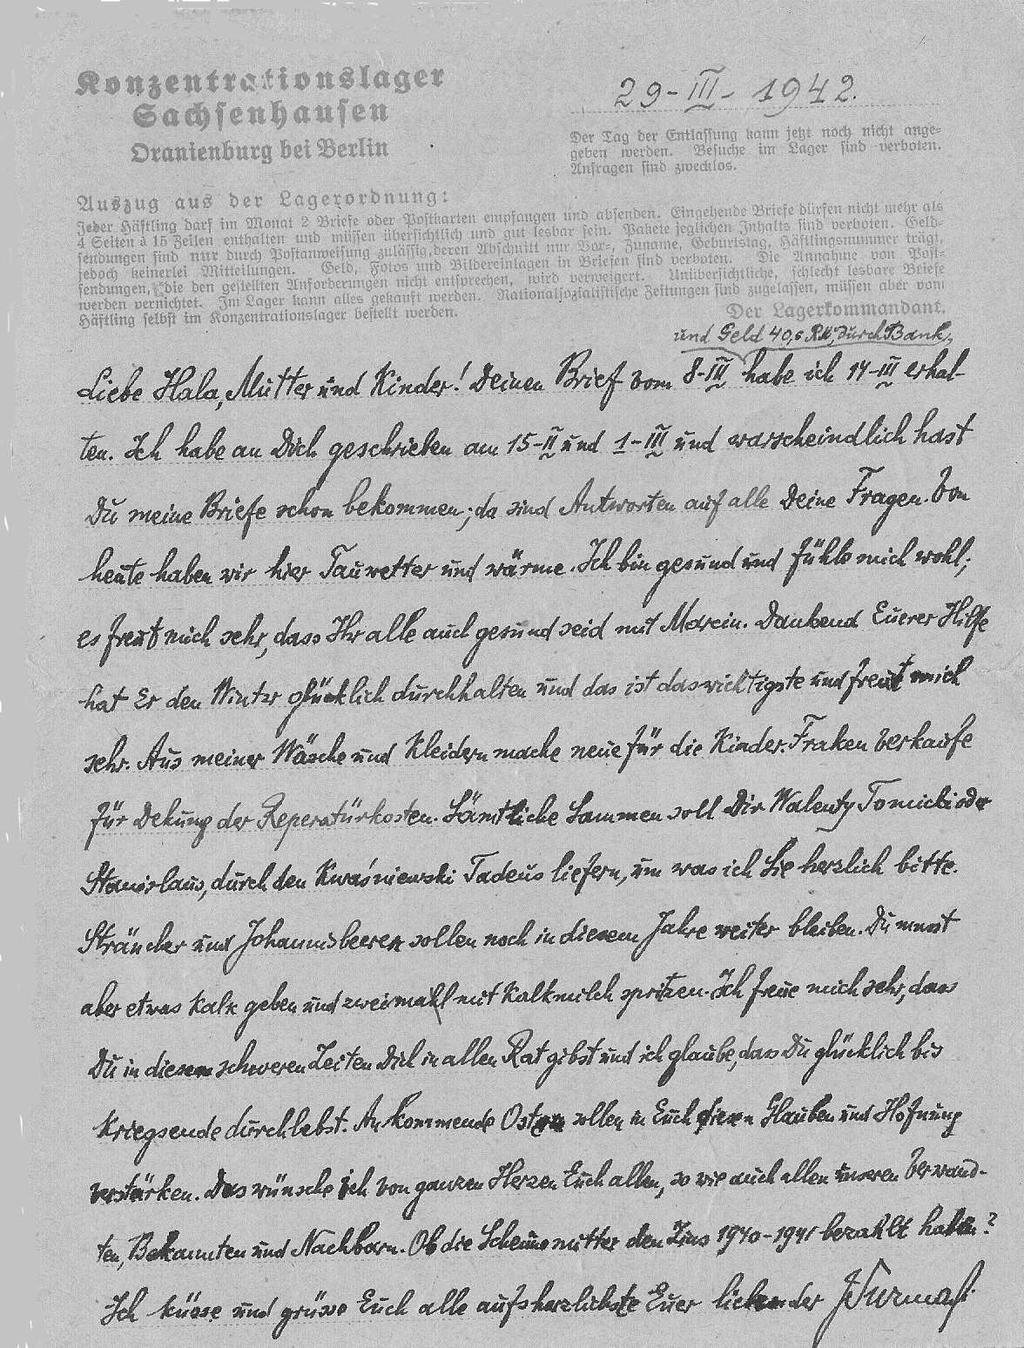 Konzentrationslager
Sachsenhausen
Oranienburg bei Berlin
29-III-1942.
Der Tag der Entlassung kann jetzt noch nicht ange-
geben werden. Besuche im Lager sind verboten.
Anfragen sind zwecklos.
Auszug aus der Lagerordnung:
Jeder Häftling darf im Monat 2 Briefe oder Postkarten empfangen und absenden. Eingehende Briefe dürfen nicht mehr als
4 Seiten à 15 Zeilen enthalten und müssen übersichtlich und gut lesbar sein. Pakete jeglichen Inhalts sind verboten. Geld-
sendungen sind nur durch Postanweisung zulässig, deren Abschnitt nur Vor-, Zuname, Geburtstag, Häftlingsnummer trägt,
jedoch keinerlei Mitteilungen. Geld, Fotos und Bildereinlagen in Briefen sind verboten. Die Annahme von Post-
sendungen, die den gestellten Anforderungen nicht entsprechen, wird verweigert. Unübersichtliche, schlecht lesbare Briefe
werden vernichtet. Im Lager kann alles gekauft werden. Nationalsozialistische Zeitungen sind zugelassen, müssen aber vom
Häftling selbst im Konzentrationslager bestellt werden.
Der Lagerkommandant.
und Geld 40, RM, durch Bank,
Liebe Hala, Mutter und Kinder! Deinen Brief vom 8-III habe ich 14-III erhal-
ten. Ich habe an Dich geschrieben am 15-II und 1-III und warscheindlich hast
Du meine Briefe schon bekommen; da sind Antworten auf alle Deine Fragen. Von
heute haben wir hier Tauwetter und wärme. Ich bin gesund und fühle mich wohl;
es freut mich sehr, dass Ihr alle auch gesund seid mit Marcin. Dankend Euerer Hilfe
hat Er den Winter glücklich durchhalten und das ist das wichtigste und freut mich
sehr. Aus meiner Wäsche und Kleidern mache neue für die Kinder. Fraken verkaufe
für Dekung der Reperatürkosten. Sämtliche Sammen soll Dir Walenty Tomicki oder
Stanislaus, durch den Kwaśniewski Tadeus liefern, um was ich Sie herzlich bitte.
Sträucher und Johannisbeeren sollen noch in diesem Jahre weiter bleiben. Du musst
aber etwas Kalk geben und zweimahl mit Kalkmilch spritzen. Ich freue mich sehr, dass
Du in diesem schweren Zeiten Dich in allen Rat gibst und ich glaube, das Du glücklich bis
Kriegsende durchlebst. An kommende Ostern sollen in Euch Glauben und Hofnung
verstärken. Das wünsche ich von ganzen Herzen Euch allen, so wie auch allen unseren Verwand-
ten, Bekannten und Nachbarn. Ob die den Zins 1940-1941 bezahlt haben?
Ich küsse und grüsse Euch alle aufsherzlichste Euer liebender